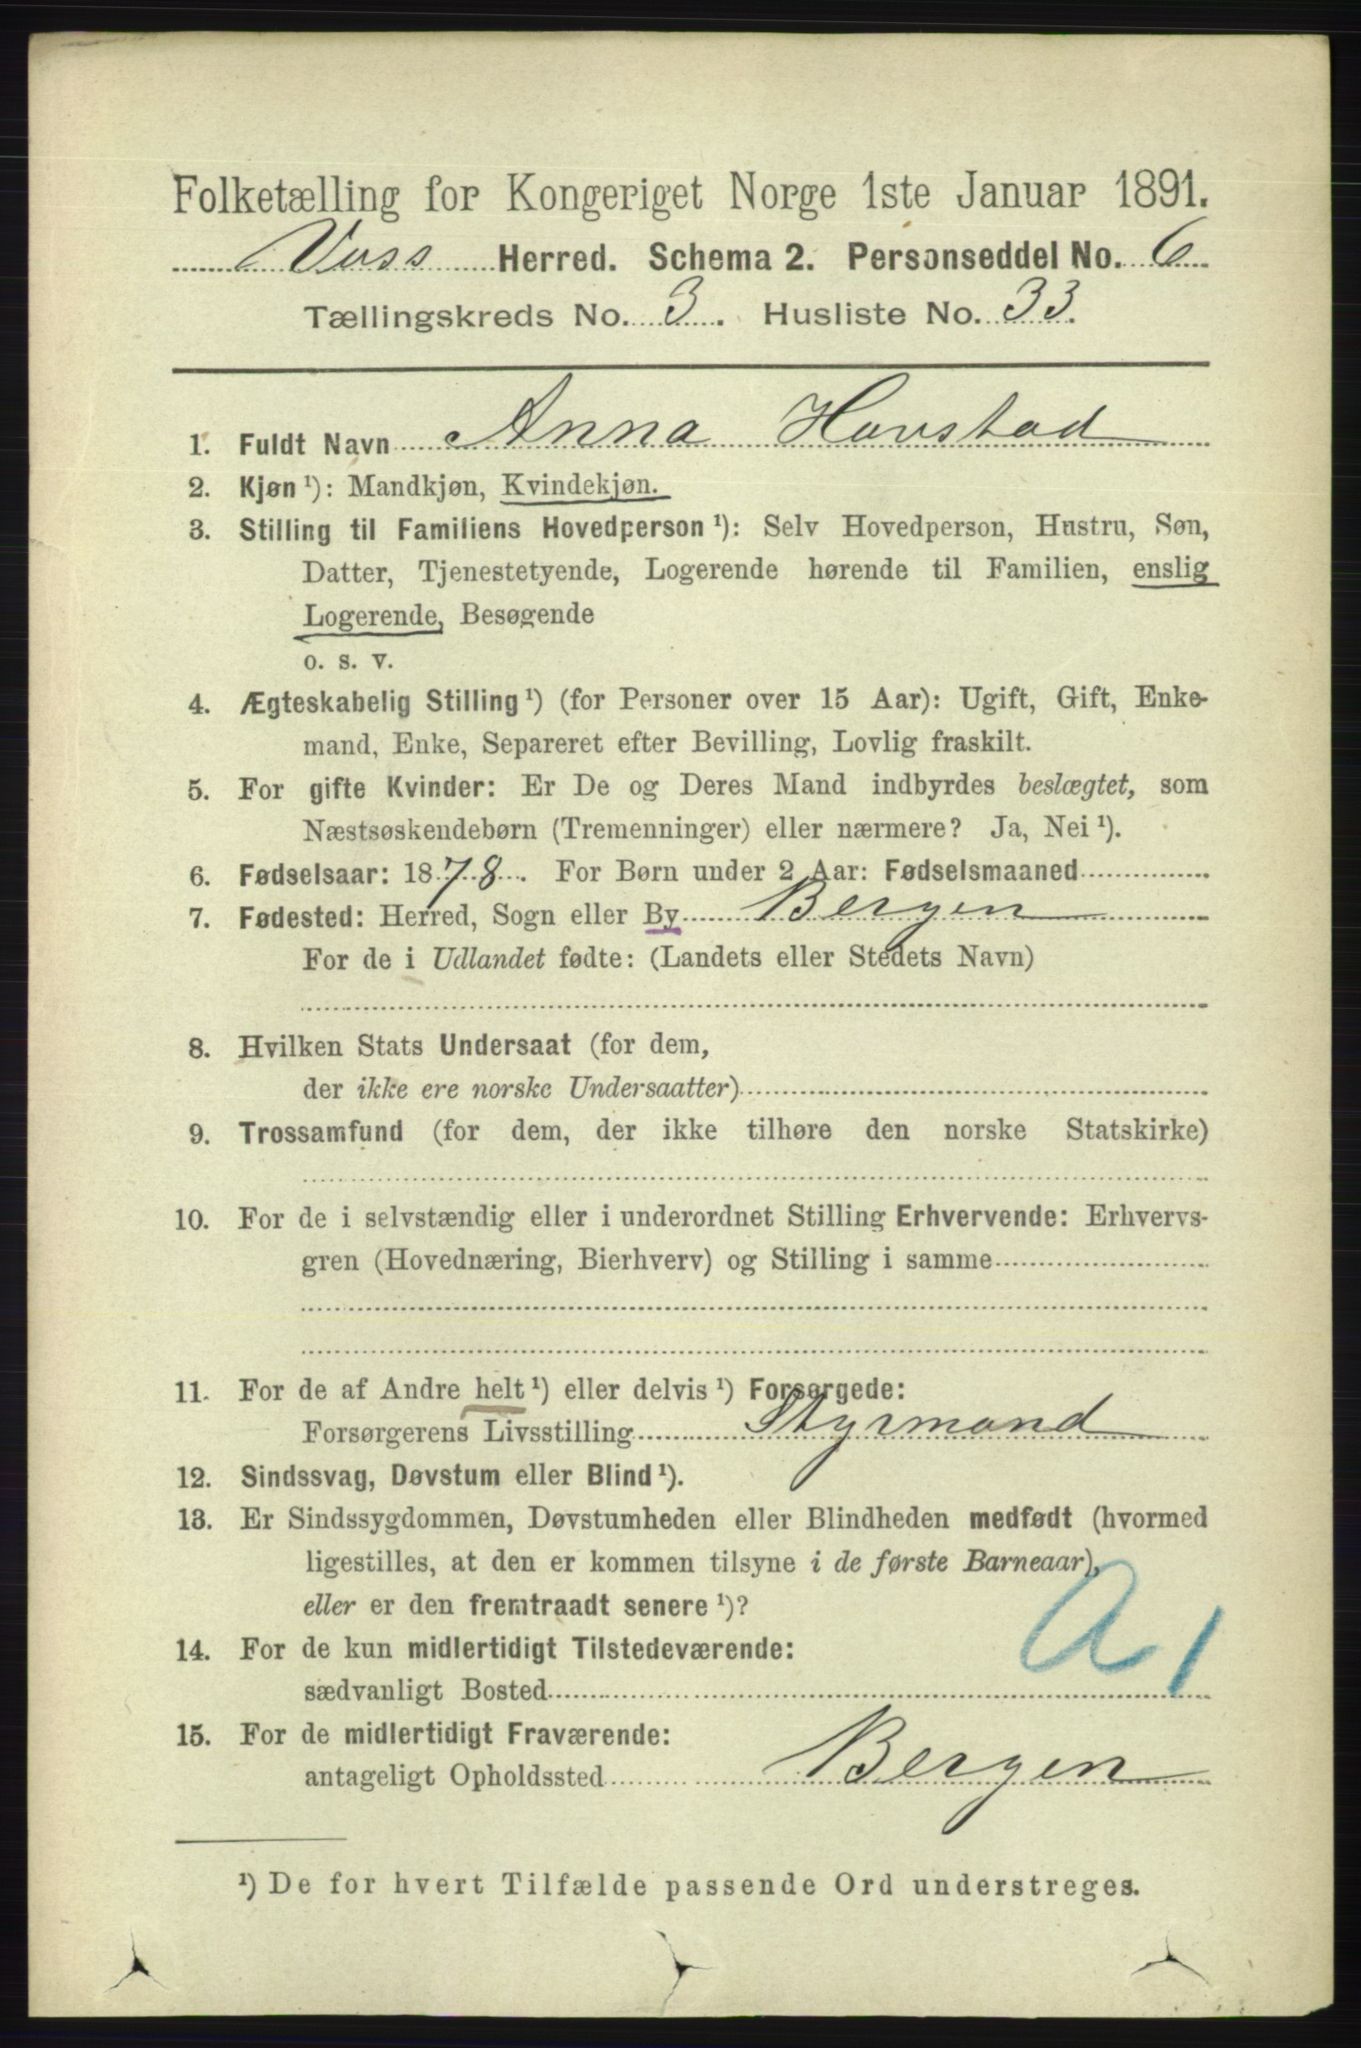 Folketælling for Kongeriget Norge 1ste Januar 1891.
Voss Herred. Schema 2. Personseddel No. 6
Tællingskreds No. 3. Husliste No. 33.
1. Fuldt Navn Anna Havstad
2. Kjøn ¹): Mandkjøn, Kvindekjøn.
3. Stilling til Familiens Hovedperson ¹): Selv Hovedperson, Hustru, Søn,
Datter, Tjenestetyende, Logerende hørende til Familien, enslig
Logerende, Besøgende
o. s. v.
4. Ægteskabelig Stilling ¹) (for Personer over 15 Aar): Ugift, Gift, Enke-
mand, Enke, Separeret efter Bevilling, Lovlig fraskilt.
5. For gifte Kvinder: Er De og Deres Mand indbyrdes beslægtet, som
Næstsøskendebørn (Tremenninger) eller nærmere? Ja, Nei ¹).
6. Fødselsaar: 1878. For Børn under 2 Aar: Fødselsmaaned
7. Fødested: Herred, Sogn eller By Bergen
For de i Udlandet fødte: (Landets eller Stedets Navn)
8. Hvilken Stats Undersaat (for dem,
der ikke ere norske Undersaatter)
9. Trossamfund (for dem, der ikke tilhøre den norske Statskirke)
10. For de i selvstændig eller i underordnet Stilling Erhvervende: Erhvervs-
gren (Hovednæring, Bierhverv) og Stilling i samme
11. For de af Andre helt ¹) eller delvis ¹) Forsørgede:
Forsørgerens Livsstilling Styrmand
12. Sindssvag, Døvstum eller Blind ¹).
13. Er Sindssygdommen, Døvstumheden eller Blindheden medfødt (hvormed
ligestilles, at den er kommen tilsyne i de første Barneaar),
eller er den fremtraadt senere ¹)?
A 1
14. For de kun midlertidigt Tilstedeværende:
sædvanligt Bosted
15. For de midlertidigt Fraværende:
antageligt Opholdssted Bergen
¹) De for hvert Tilfælde passende Ord understreges.